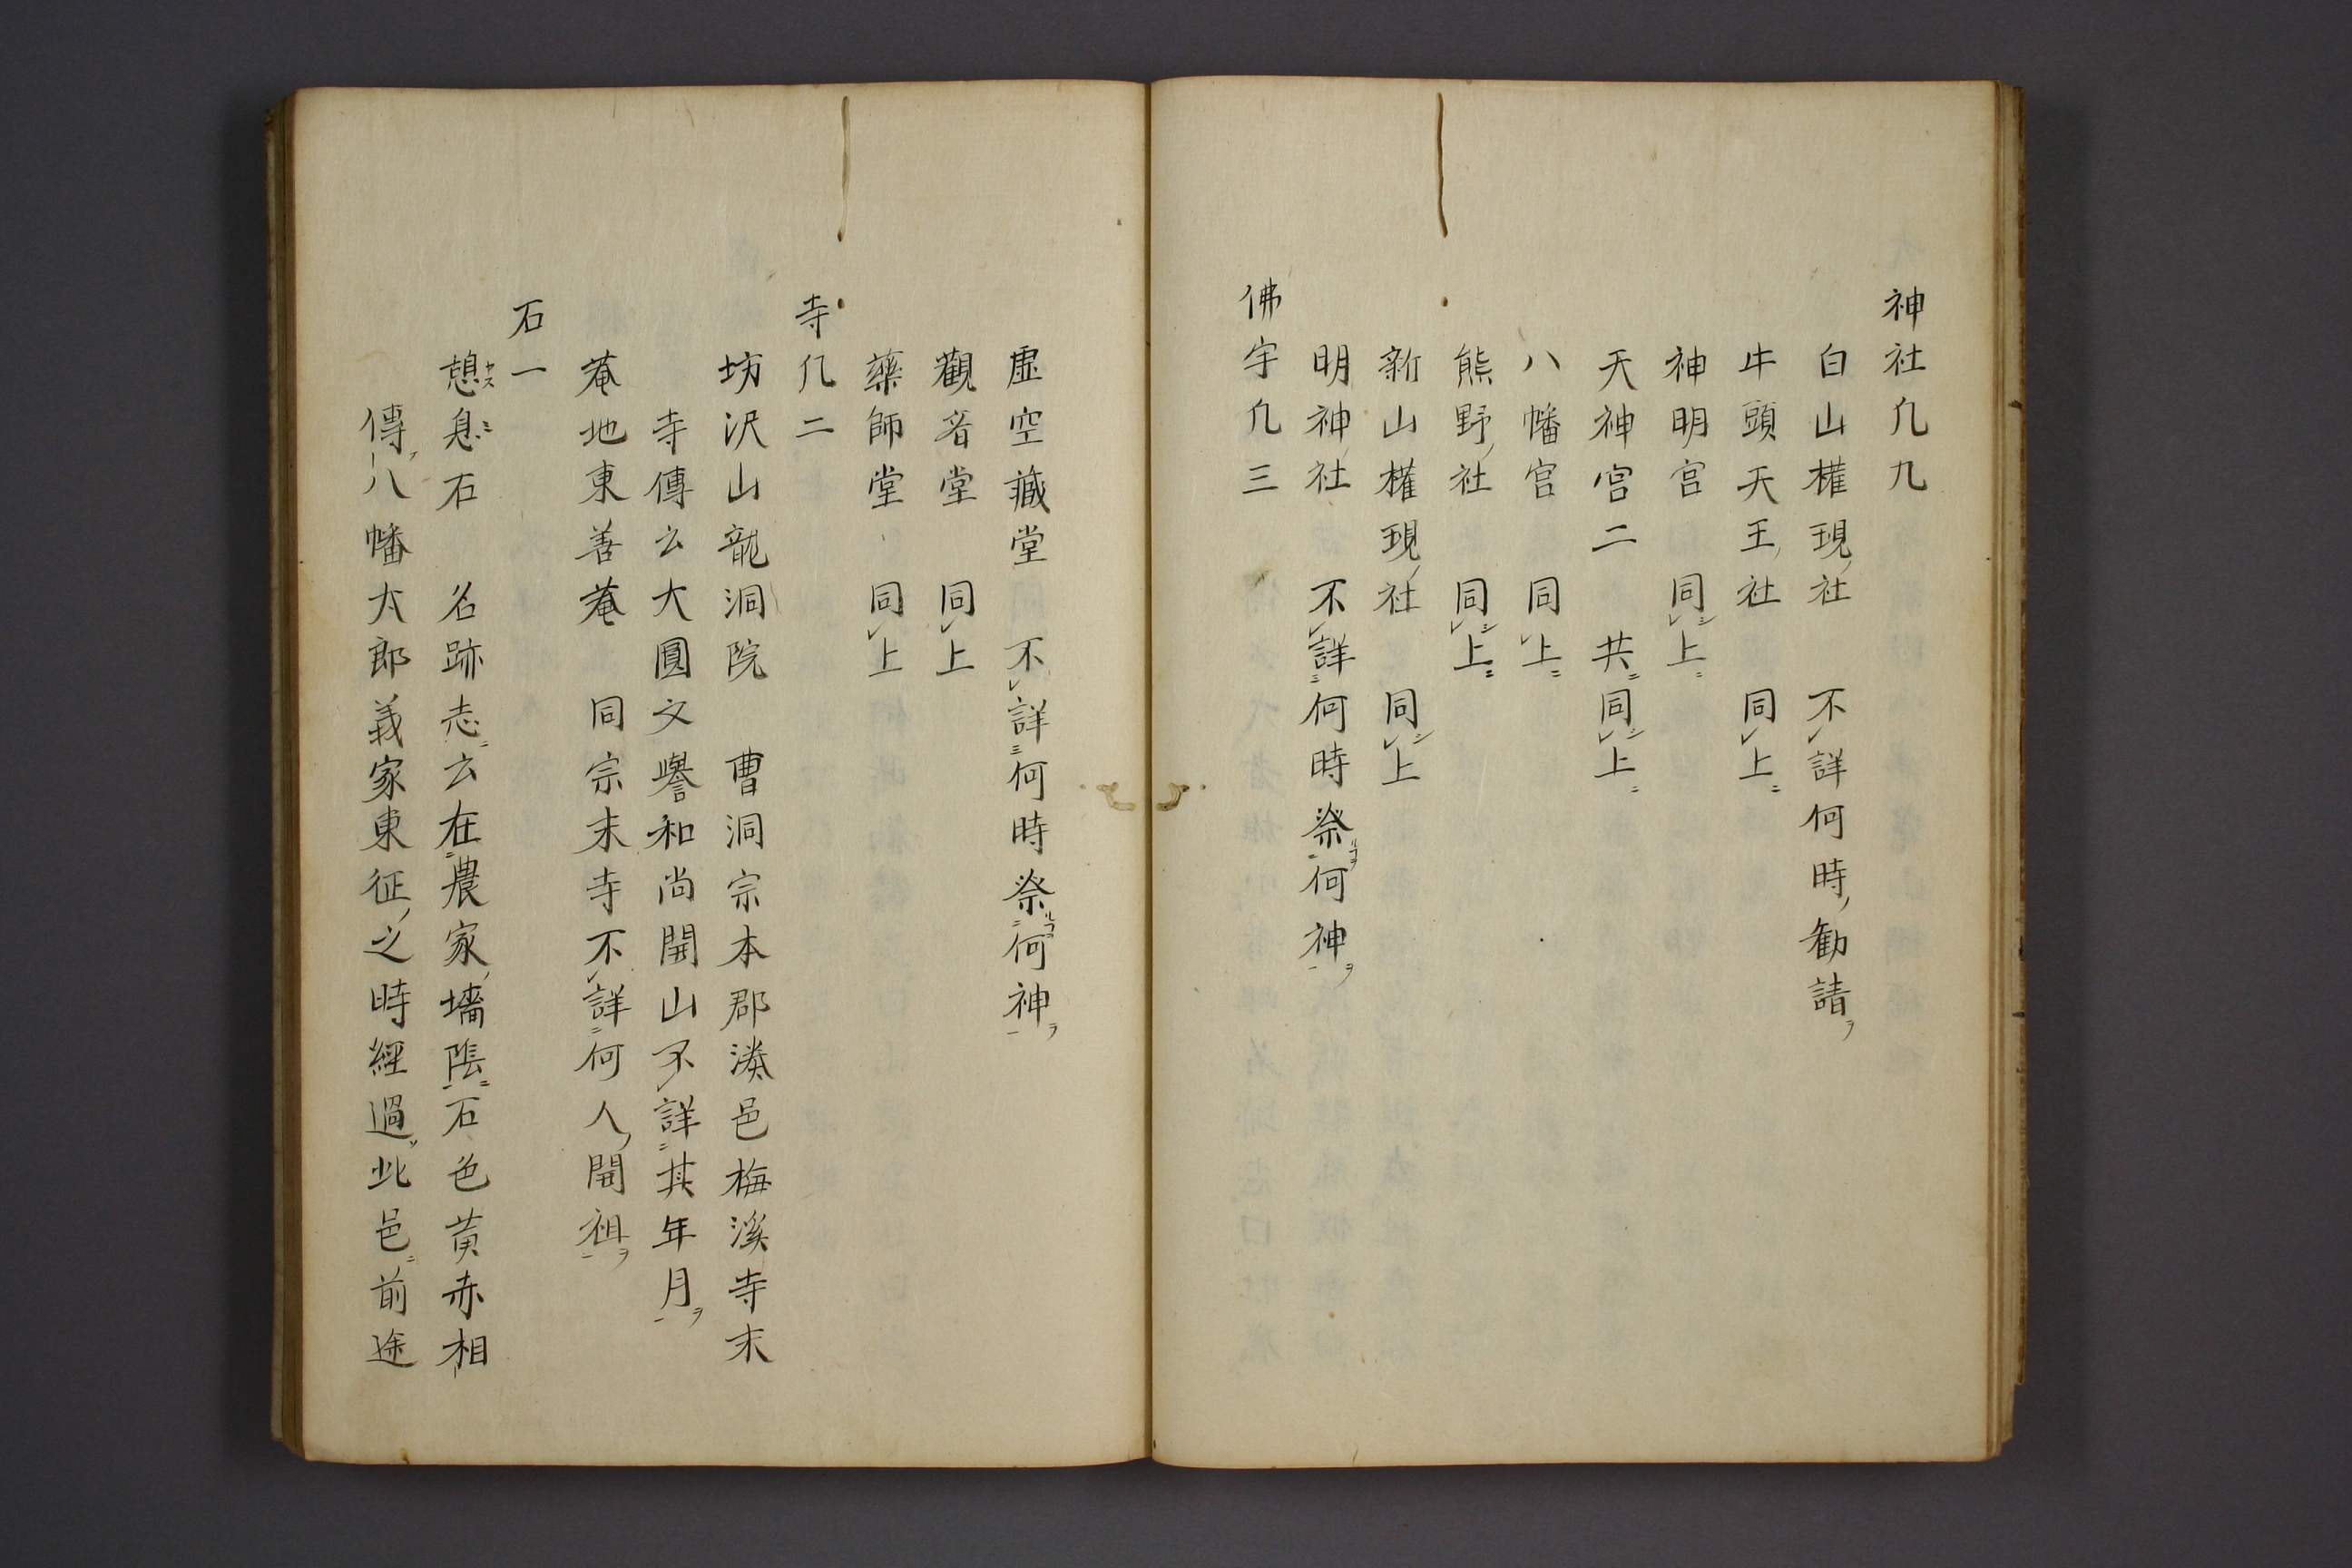 神社凡九
白山權現社　不詳何時勧請
牛頭天王社　同上
神明宮　同上
天神宮二　共同上
八幡宮　同上
熊野社　同上
新山權現社　同上
明神社　不詳何時祭何神
佛宇凡三
虚空藏堂　不詳何時祭何神
觀音堂　同上
藥師堂　同上
寺凡二
坊沢山龍洞院　曹洞宗本郡湊邑梅溪寺末
寺傳云大圓文譽和尚開山不詳其年月
菴地東善菴　同宗末寺不詳何人開祖
石一
憩息石　名跡志云在農家墻陰石色黄赤相
傳八幡太郎義家東征之時經過此邑前途